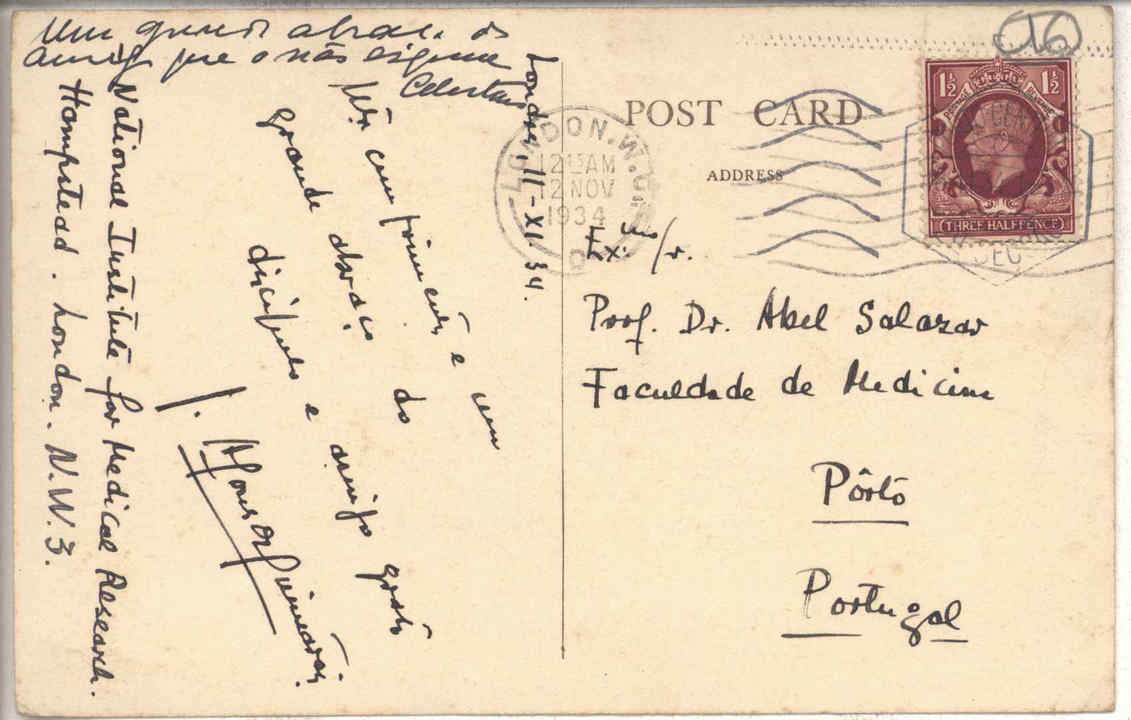 Um grande abraço do
amigo que o não esquece
Celestino
Londres, 11-XI.34.
e um
grande abraço do
discípulo e amigo grato
J. Afonso Guimarães.
National Institute for Medical Research.
Hampstead. London. N.W.3.
16
POST CARD
ADDRESS
LONDON. W.C.
12 15 AM
12 NOV
1934
D
1½ 1½
POSTAGE REVENUE
THREE HALFPENCE
Ex.mo Sr.
Prof. Dr. Abel Salazar
Faculdade de Medicina
Pôrto
Portugal